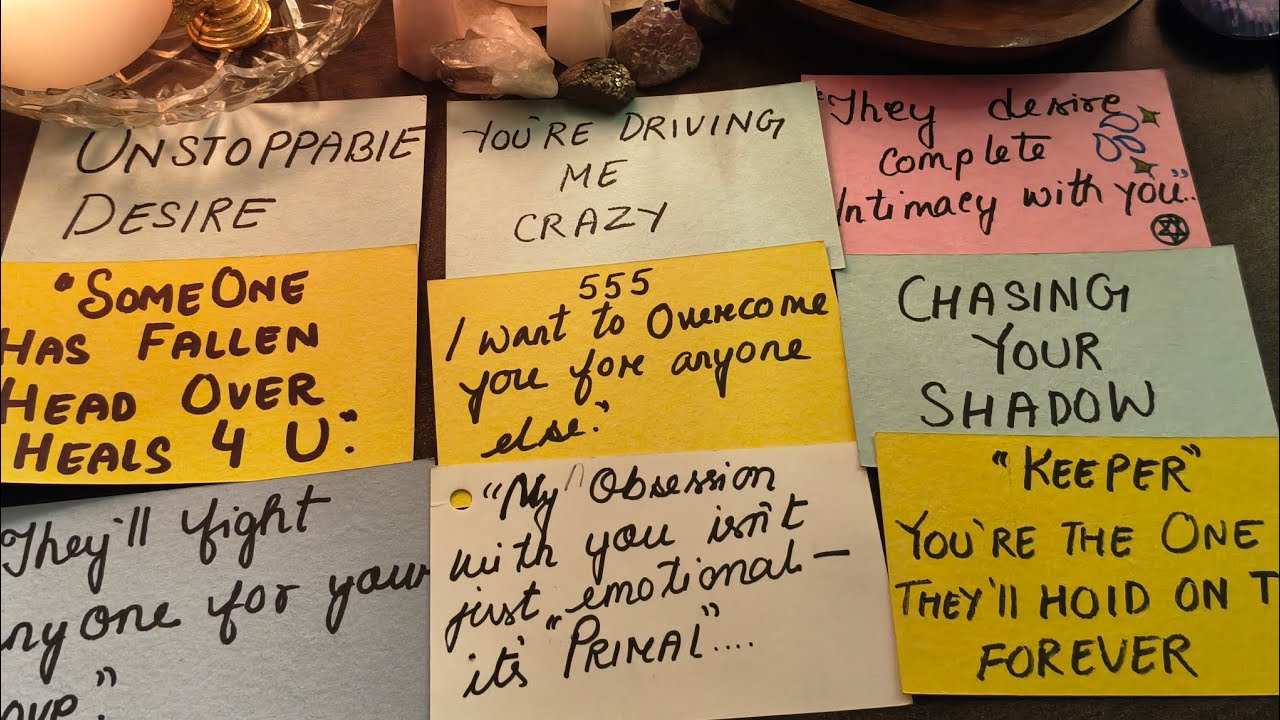 UNSTOPPABLE
DESIRE
YOU'RE DRIVING
ME
CRAZY
"They desire
complete
Intimacy with you"..
"SOMEONE
HAS FALLEN
HEAD OVER
HEALS 4 U".
555
I want to Overcome
you fore anyone
else."
CHASING
YOUR
SHADOW
They'll fight
nyone for your
"My Obsession
with you isn't
just emotional—
it's "PRIMAL"....
"KEEPER"
YOU'RE THE ONE
THEY'll HOlD ON T
FOREVER